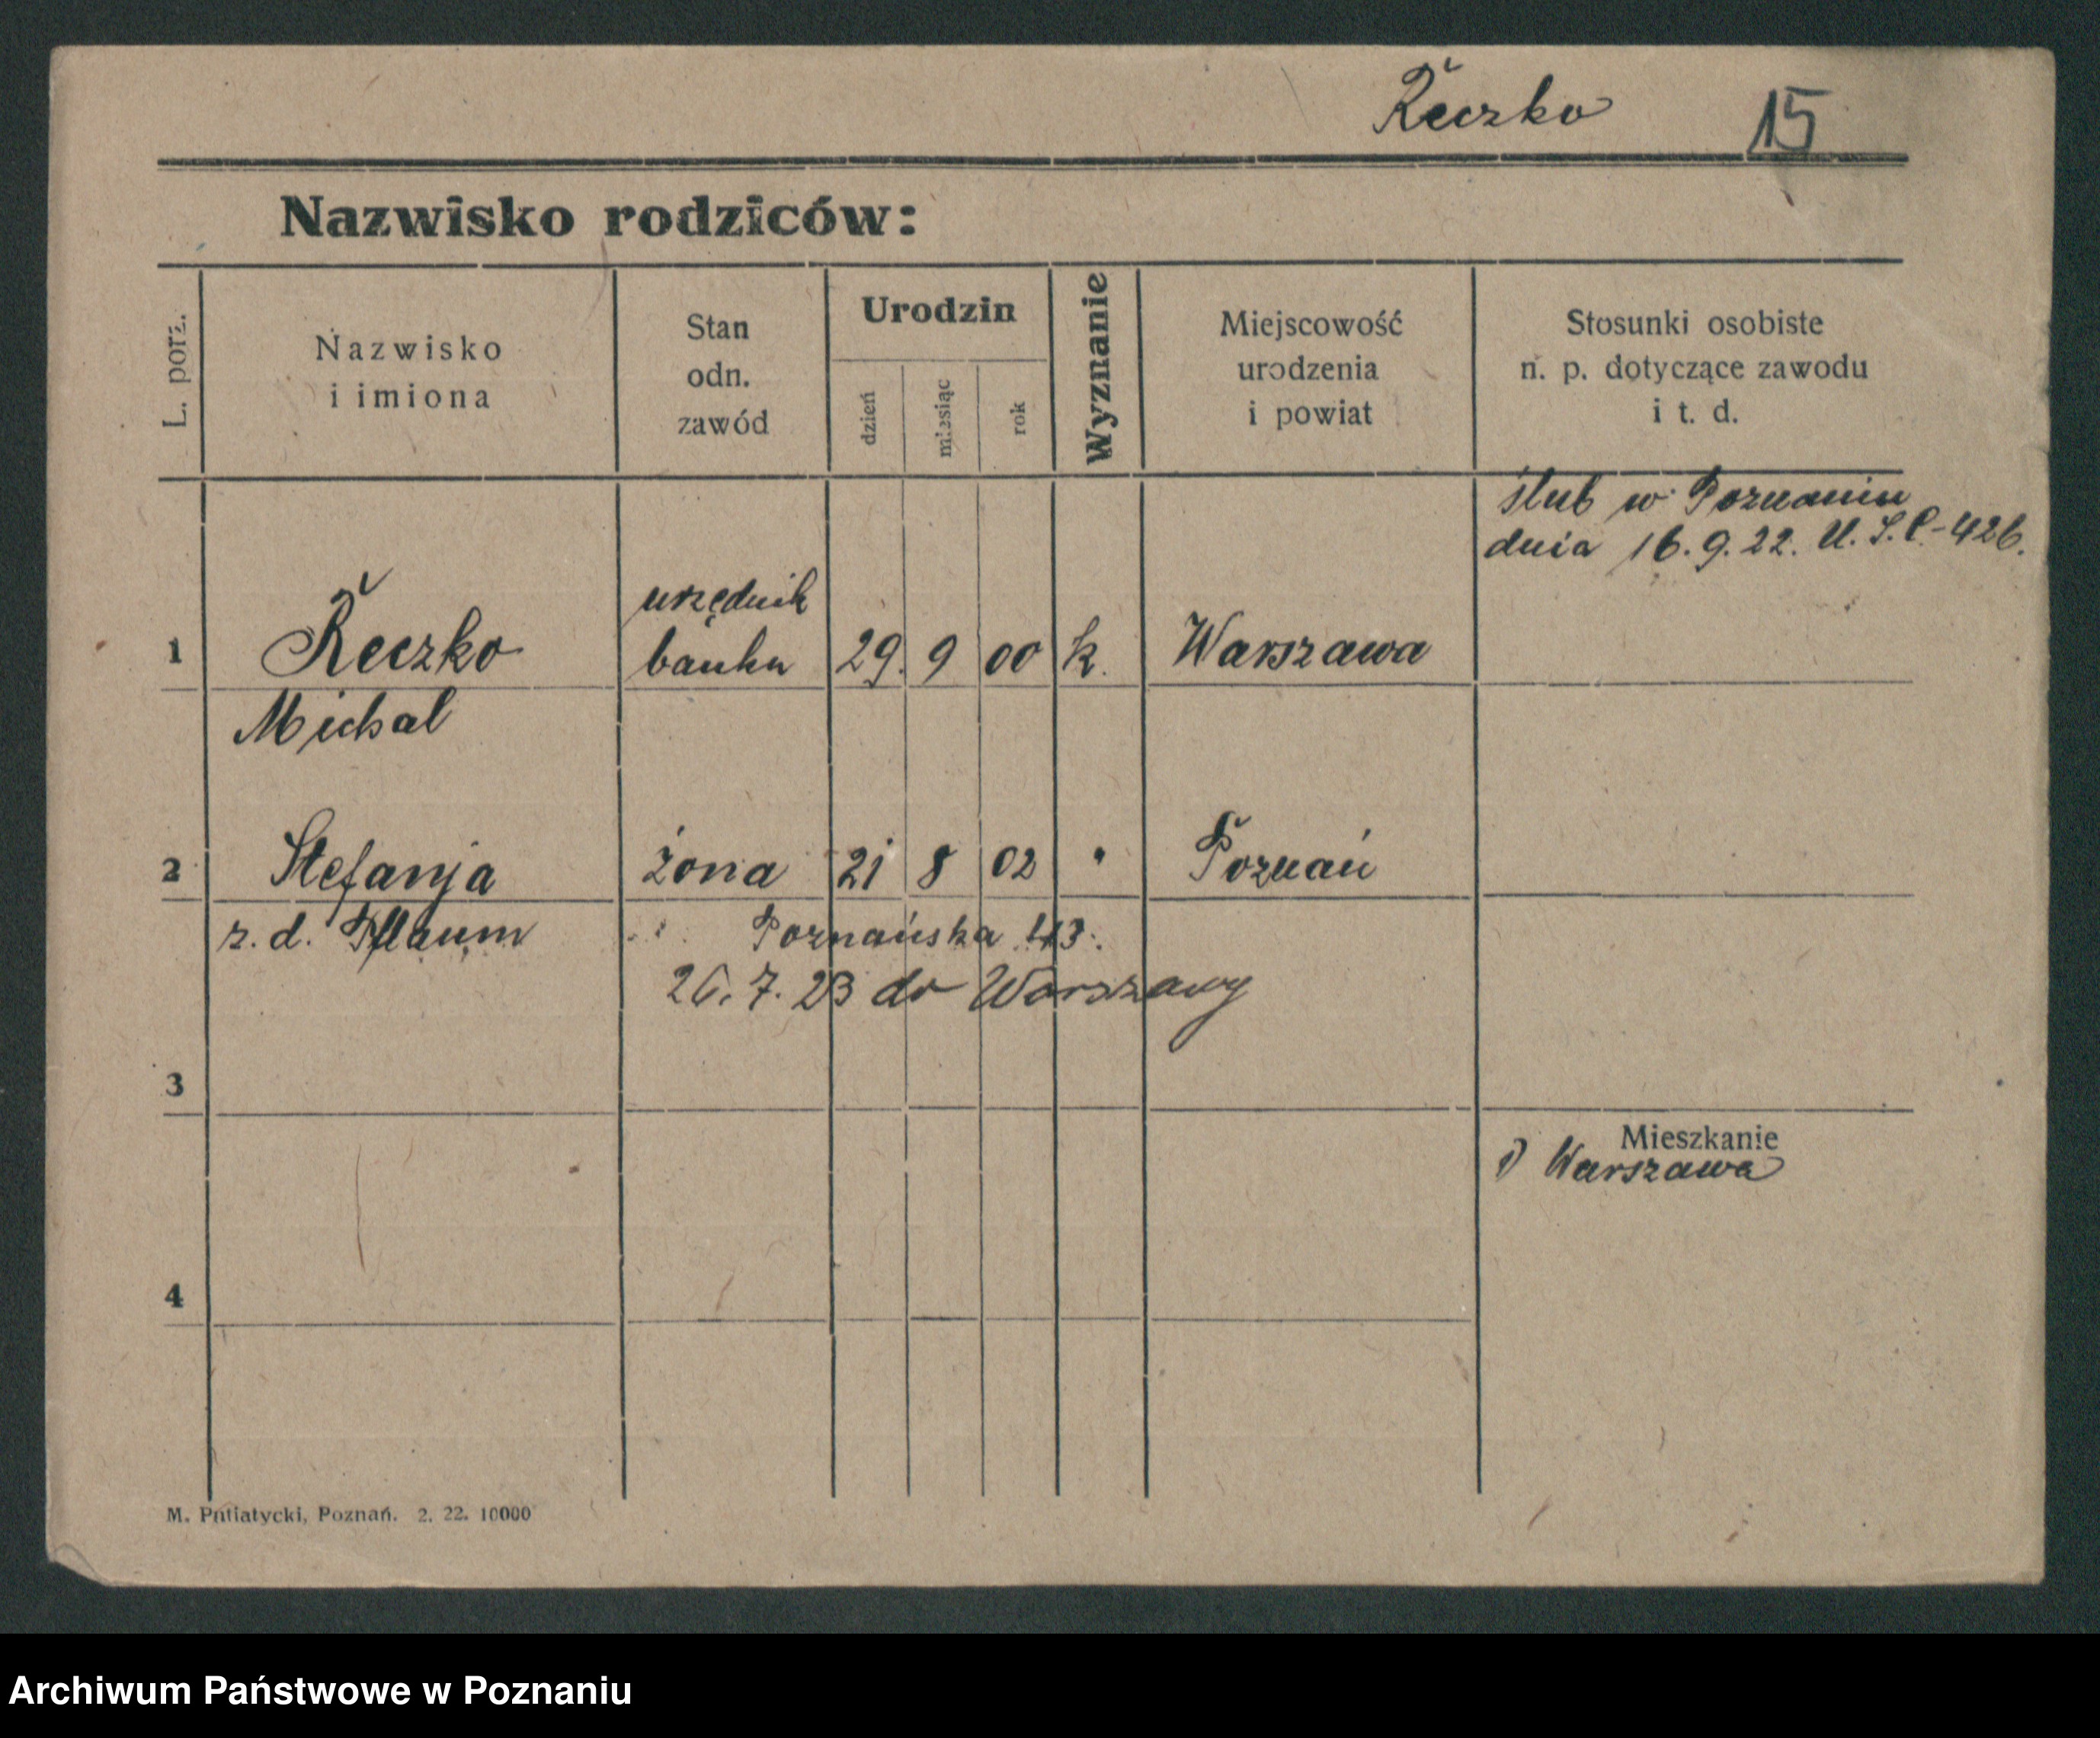 Reczko 15
Nazwisko rodziców:
L. porz.
Nazwisko
i imiona
Stan
odn.
zawód
Urodzin
dzień
miesiąc
rok
Wyznanie
Miejscowość
urodzenia
i powiat
Stosunki osobiste
n. p. dotyczące zawodu
i t. d.
ślub w Poznaniu
dnia 16.9.22. U.S.C-426.
urzędnik
1 Reczko banku 29. 9 00 k. Warszawa
Michal
2 Stefanja żona 21 8 02 " Poznań
z. d. Pflaum Poznańska 43.
26. 7. 23 do Warszawy
3
Mieszkanie
1) Warszawa
4
M. Putiatycki, Poznań. 2. 22. 10000
Archiwum Państwowe w Poznaniu